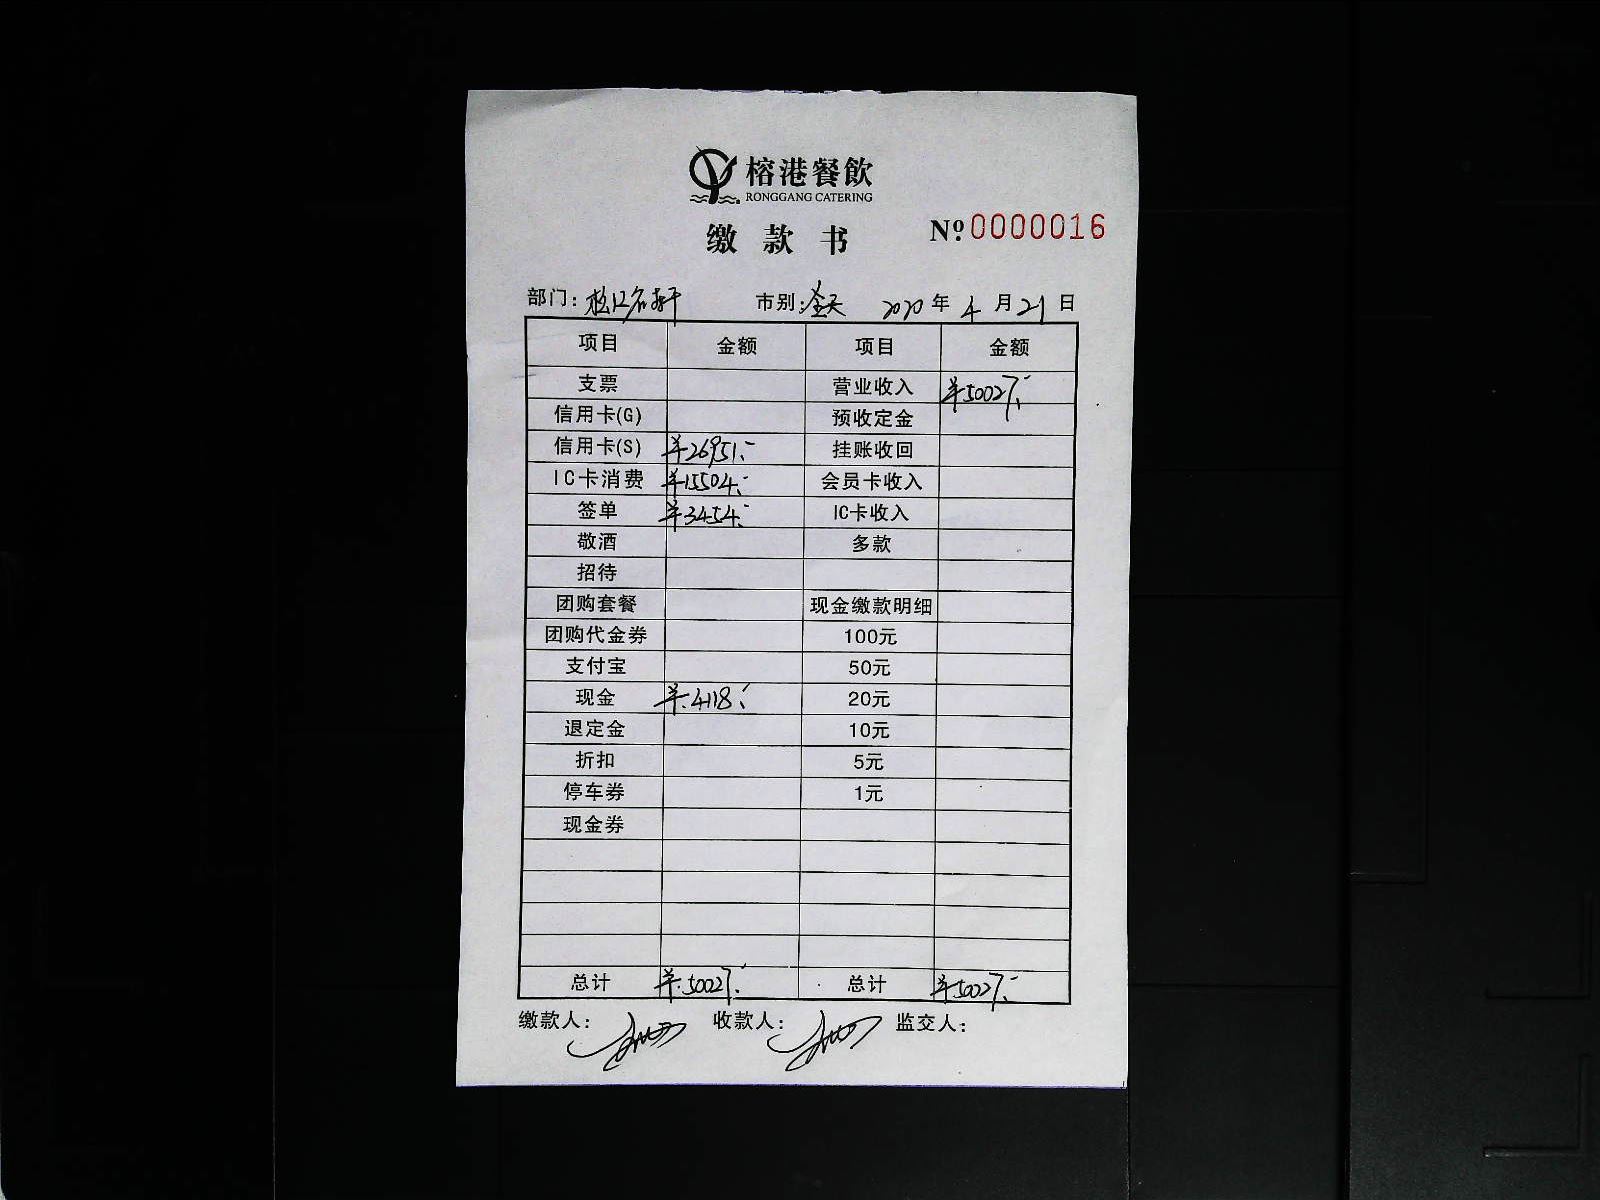 榕港餐飲
RONGGANG CATERING
缴款书 Nº 0000016
部门：松江名轩 市别：全天 2020年4月21日
项目 金额 项目 金额
支票 营业收入 ¥50027.-
信用卡(G) 预收定金
信用卡(S) ¥26951.- 挂账收回
IC卡消费 ¥15504.- 会员卡收入
签单 ¥3454.- IC卡收入
敬酒 多款
招待
团购套餐 现金缴款明细
团购代金券 100元
支付宝 50元
现金 ¥4118.- 20元
退定金 10元
折扣 5元
停车券 1元
现金券
总计 ¥50027.- 总计 ¥50027.-
缴款人： 收款人： 监交人：